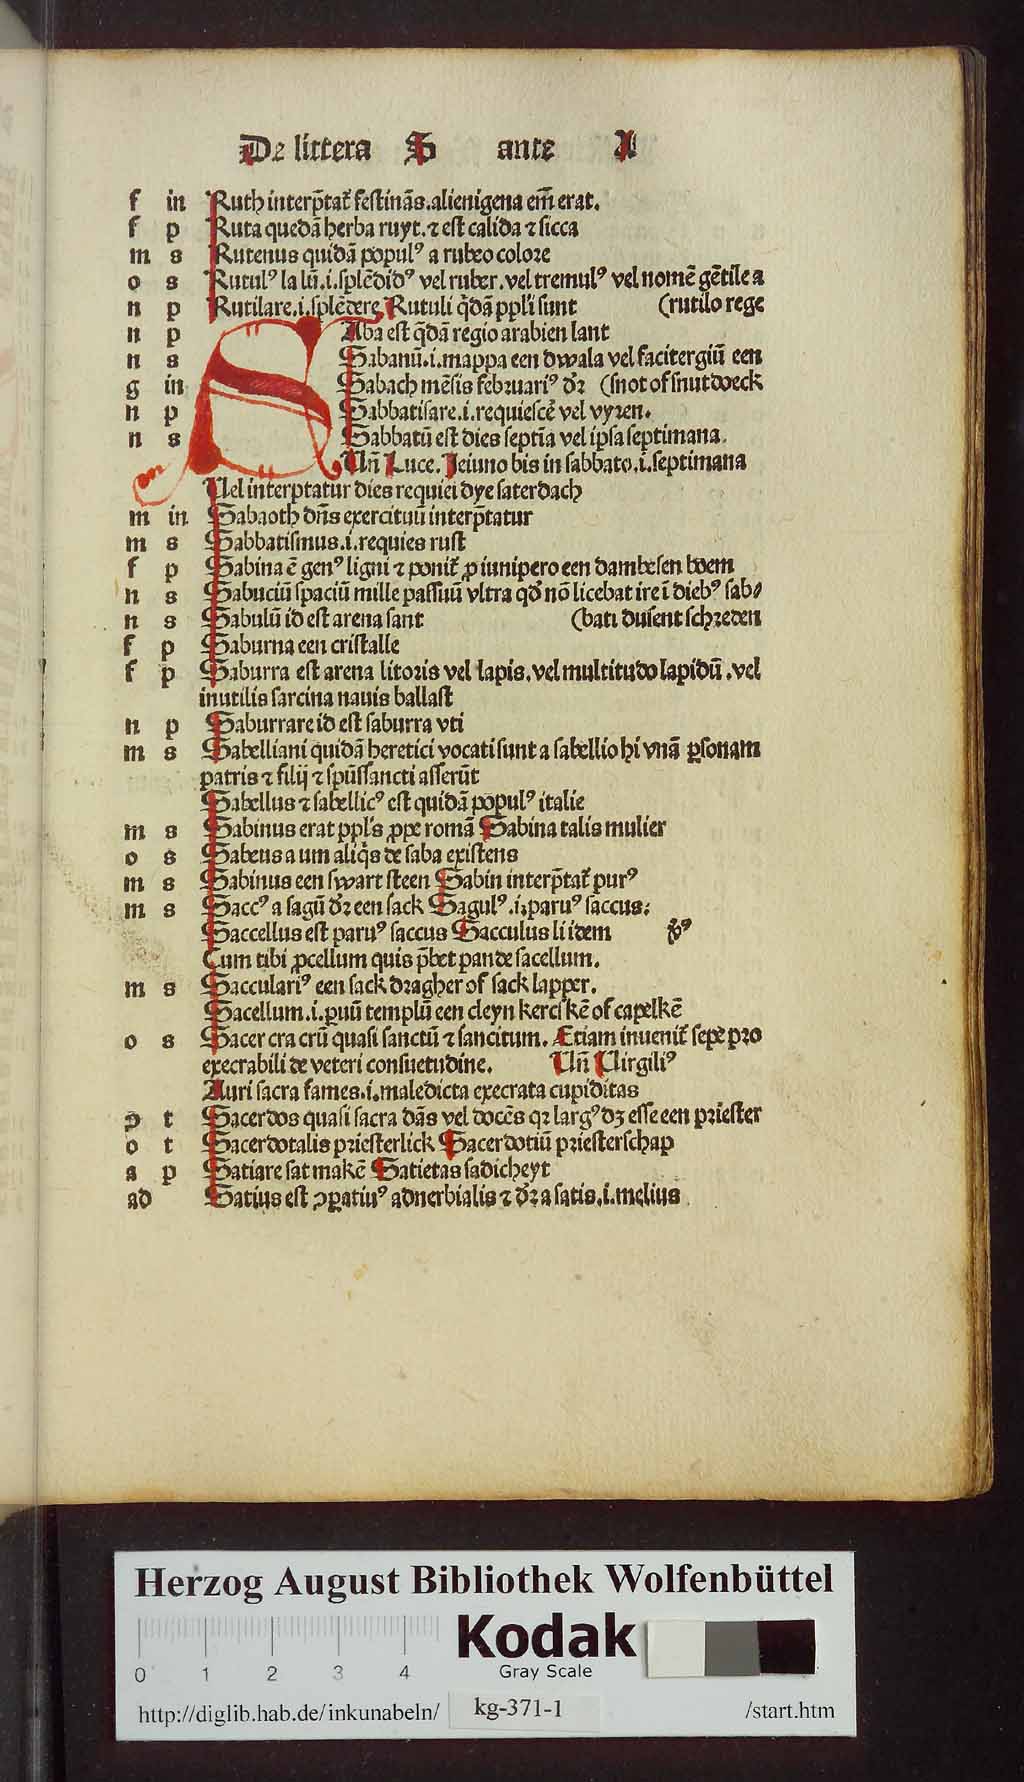 De littera S ante A
f in Ruth interp̄tat᷑ festinās.alienigena em̄ erat.
f p Ruta quedā herba ruyt.⁊ est calida ⁊ sicca
m s Rutenus quidā popul⁹ a rubeo colore
o s Rutul⁹ la lū.i.splēdid⁹ vel ruber.vel tremul⁹ vel nomē gētile a
n p Rutilare.i.splēdere Rutuli q̄dā ppl'i sunt (rutilo rege
n p Aba est q̄dā regio arabien lant
n s Sabanū.i.mappa een dwala vel facitergiū een
g in Sabach mēsis februari⁹ d᷑ꝛ (snot of snutdoeck
n p Sabbatisare.i.requiescē vel vyren.
n s Sabbatū est dies septīa vel ipsa septimana.
Un̄ Luce. Jeiuno bis in sabbato.i.septimana
Uel interptatur dies requiei dye saterdach
m in Sabaoth dn̄s exercituū interp̄tatur
m s Sabbatismus.i.requies rust
f p Sabina ē gen⁹ ligni ⁊ ponit᷑ ꝓ iunipero een dambesen boem
n s Sabuciū spaciū mille passuū vltra qd᷑ nō licebat ire ī dieb⁹ sab⸗
n s Sabulū id est arena sant (bati dusent schreden
f p Saburna een cristalle
f p Saburra est arena litoris vel lapis.vel multitudo lapidū.vel
inutilis sarcina nauis ballast
n p Saburrare id est saburra vti
m s Sabelliani quidā heretici vocati sunt a sabellio hi vnā ꝑsonam
patris ⁊ filij ⁊ spūssancti asserūt
Sabellus ⁊ sabellic⁹ est quidā popul⁹ italie
m s Sabinus erat ppl's ꝓpe romā Sabina talis mulier
o s Sabeus a um aliq̄s de saba existens
m s Sabinus een swart steen Sabin interp̄tat᷑ pur⁹
m s Sacc⁹ a sagū d᷑ꝛ een sack Sagul⁹.i.paru⁹ saccus:
Saccellus est paru⁹ saccus Sacculus li idem v̓⁹
Cum tibi ꝓcellum quis p̄bet pande sacellum.
m s Sacculari⁹ een sack dragher of sack lapper.
Sacellum.i.ꝑuū templū een cleyn kerckē of capelkē
o s Sacer cra crū quasi sanctū ⁊ sancitum. Etiam inuenit᷑ sepe pro
execrabili de veteri consuetudine. Un̄ Uirgili⁹
Auri sacra fames.i.maledicta execrata cupiditas
ↄ t Sacerdos quasi sacra dās vel docēs qꝛ larg⁹ dꝫ esse een priester
o t Sacerdotalis priesterlick Sacerdotiū priesterschap
a p Satiare sat makē Satietas sadicheyt
ad Satius est ↄꝑatiu⁹ aduerbialis ⁊ d᷑ꝛ a satis.i.melius
Herzog August Bibliothek Wolfenbüttel
Kodak
Gray Scale
0 1 2 3 4
http://diglib.hab.de/inkunabeln/ kg-371-1 /start.htm